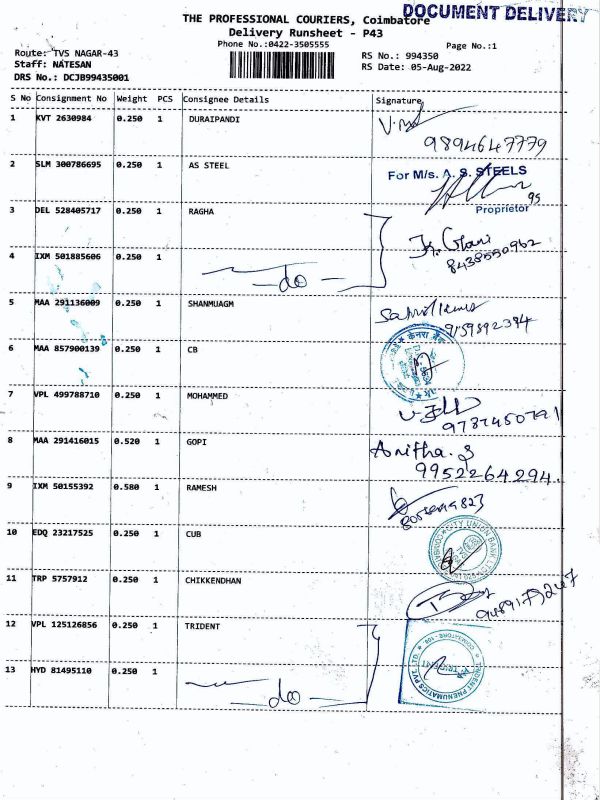 DOCUMENT DELIVERY
THE PROFESSIONAL COURIERS, Coimbatore
Delivery Runsheet - P43
Phone No.:0422-3505555
Page No.:1
Route: TVS NAGAR-43
RS No.: 994350
Staff: NATESAN
RS Date: 05-Aug-2022
DRS No.: DCJB99435001
S No Consignment No Weight PCS Consignee Details Signature
1 KVT 2630984 0.250 1 DURAIPANDI
9894647779
2 SLM 300786695 0.250 1 AS STEEL
For M/s. A. S. STEELS
Proprietor
3 DEL 528405717 0.250 1 RAGHA
4 IXM 501885606 0.250 1
do
8438550962
5 MAA 291136009 0.250 1 SHANMUAGM
9159892384
6 MAA 857900139 0.250 1 CB
7 VPL 499788710 0.250 1 MOHAMMED
9787450791
8 MAA 291416015 0.520 1 GOPI
Anitha. S
9952264294.
9 IXM 50155392 0.580 1 RAMESH
10 EDQ 23217525 0.250 1 CUB
CITY UNION BANK
11 TRP 5757912 0.250 1 CHIKKENDHAN
12 VPL 125126856 0.250 1 TRIDENT
TRIDENT PNEUMATICS PVT. LTD.
13 HYD 81495110 0.250 1
do